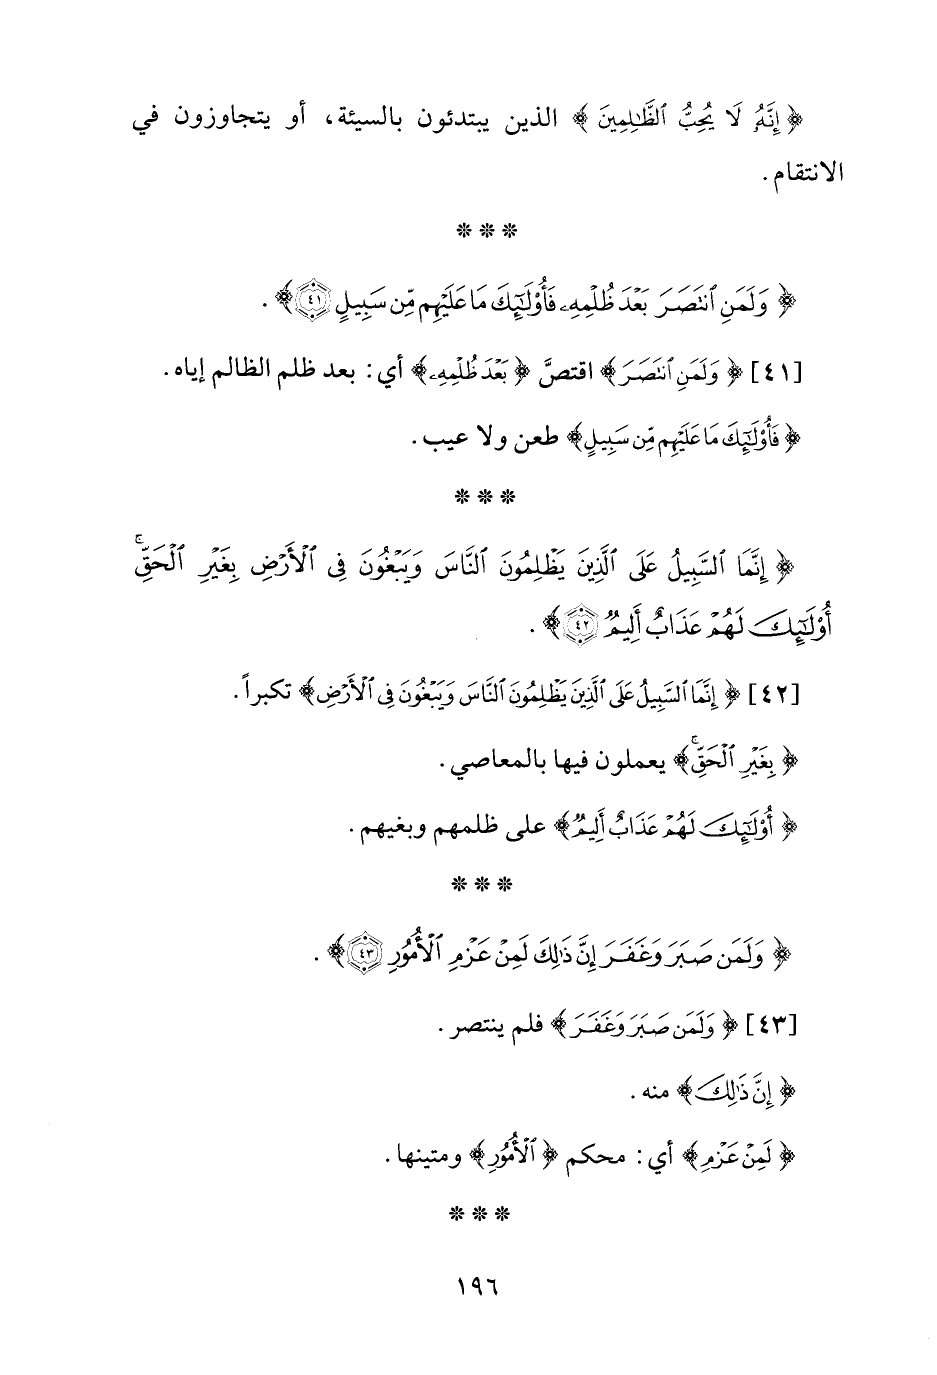 ﴿ إِنَّهُ لَا يُحِبُّ ٱلظَّٰلِمِينَ ﴾ الذين يبتدئون بالسيئة، أو يتجاوزون في
الانتقام.
* * *
﴿ وَلَمَنِ ٱنتَصَرَ بَعْدَ ظُلْمِهِۦ فَأُو۟لَٰٓئِكَ مَا عَلَيْهِم مِّن سَبِيلٍ ٤١ ﴾.
[٤١] ﴿ وَلَمَنِ ٱنتَصَرَ ﴾ اقتصَّ ﴿ بَعْدَ ظُلْمِهِۦ ﴾ أي: بعد ظلم الظالم إياه.
﴿ فَأُو۟لَٰٓئِكَ مَا عَلَيْهِم مِّن سَبِيلٍ ﴾ طعن ولا عيب.
* * *
﴿ إِنَّمَا ٱلسَّبِيلُ عَلَى ٱلَّذِينَ يَظْلِمُونَ ٱلنَّاسَ وَيَبْغُونَ فِى ٱلْأَرْضِ بِغَيْرِ ٱلْحَقِّ ۚ
أُو۟لَٰٓئِكَ لَهُمْ عَذَابٌ أَلِيمٌ ٤٢ ﴾.
[٤٢] ﴿ إِنَّمَا ٱلسَّبِيلُ عَلَى ٱلَّذِينَ يَظْلِمُونَ ٱلنَّاسَ وَيَبْغُونَ فِى ٱلْأَرْضِ ﴾ تكبراً.
﴿ بِغَيْرِ ٱلْحَقِّ ۚ ﴾ يعملون فيها بالمعاصي.
﴿ أُو۟لَٰٓئِكَ لَهُمْ عَذَابٌ أَلِيمٌ ﴾ على ظلمهم وبغيهم.
* * *
﴿ وَلَمَن صَبَرَ وَغَفَرَ إِنَّ ذَٰلِكَ لَمِنْ عَزْمِ ٱلْأُمُورِ ٤٣ ﴾.
[٤٣] ﴿ وَلَمَن صَبَرَ وَغَفَرَ ﴾ فلم ينتصر.
﴿ إِنَّ ذَٰلِكَ ﴾ منه.
﴿ لَمِنْ عَزْمِ ﴾ أي: محكم ﴿ ٱلْأُمُورِ ﴾ ومتينها.
* * *
١٩٦